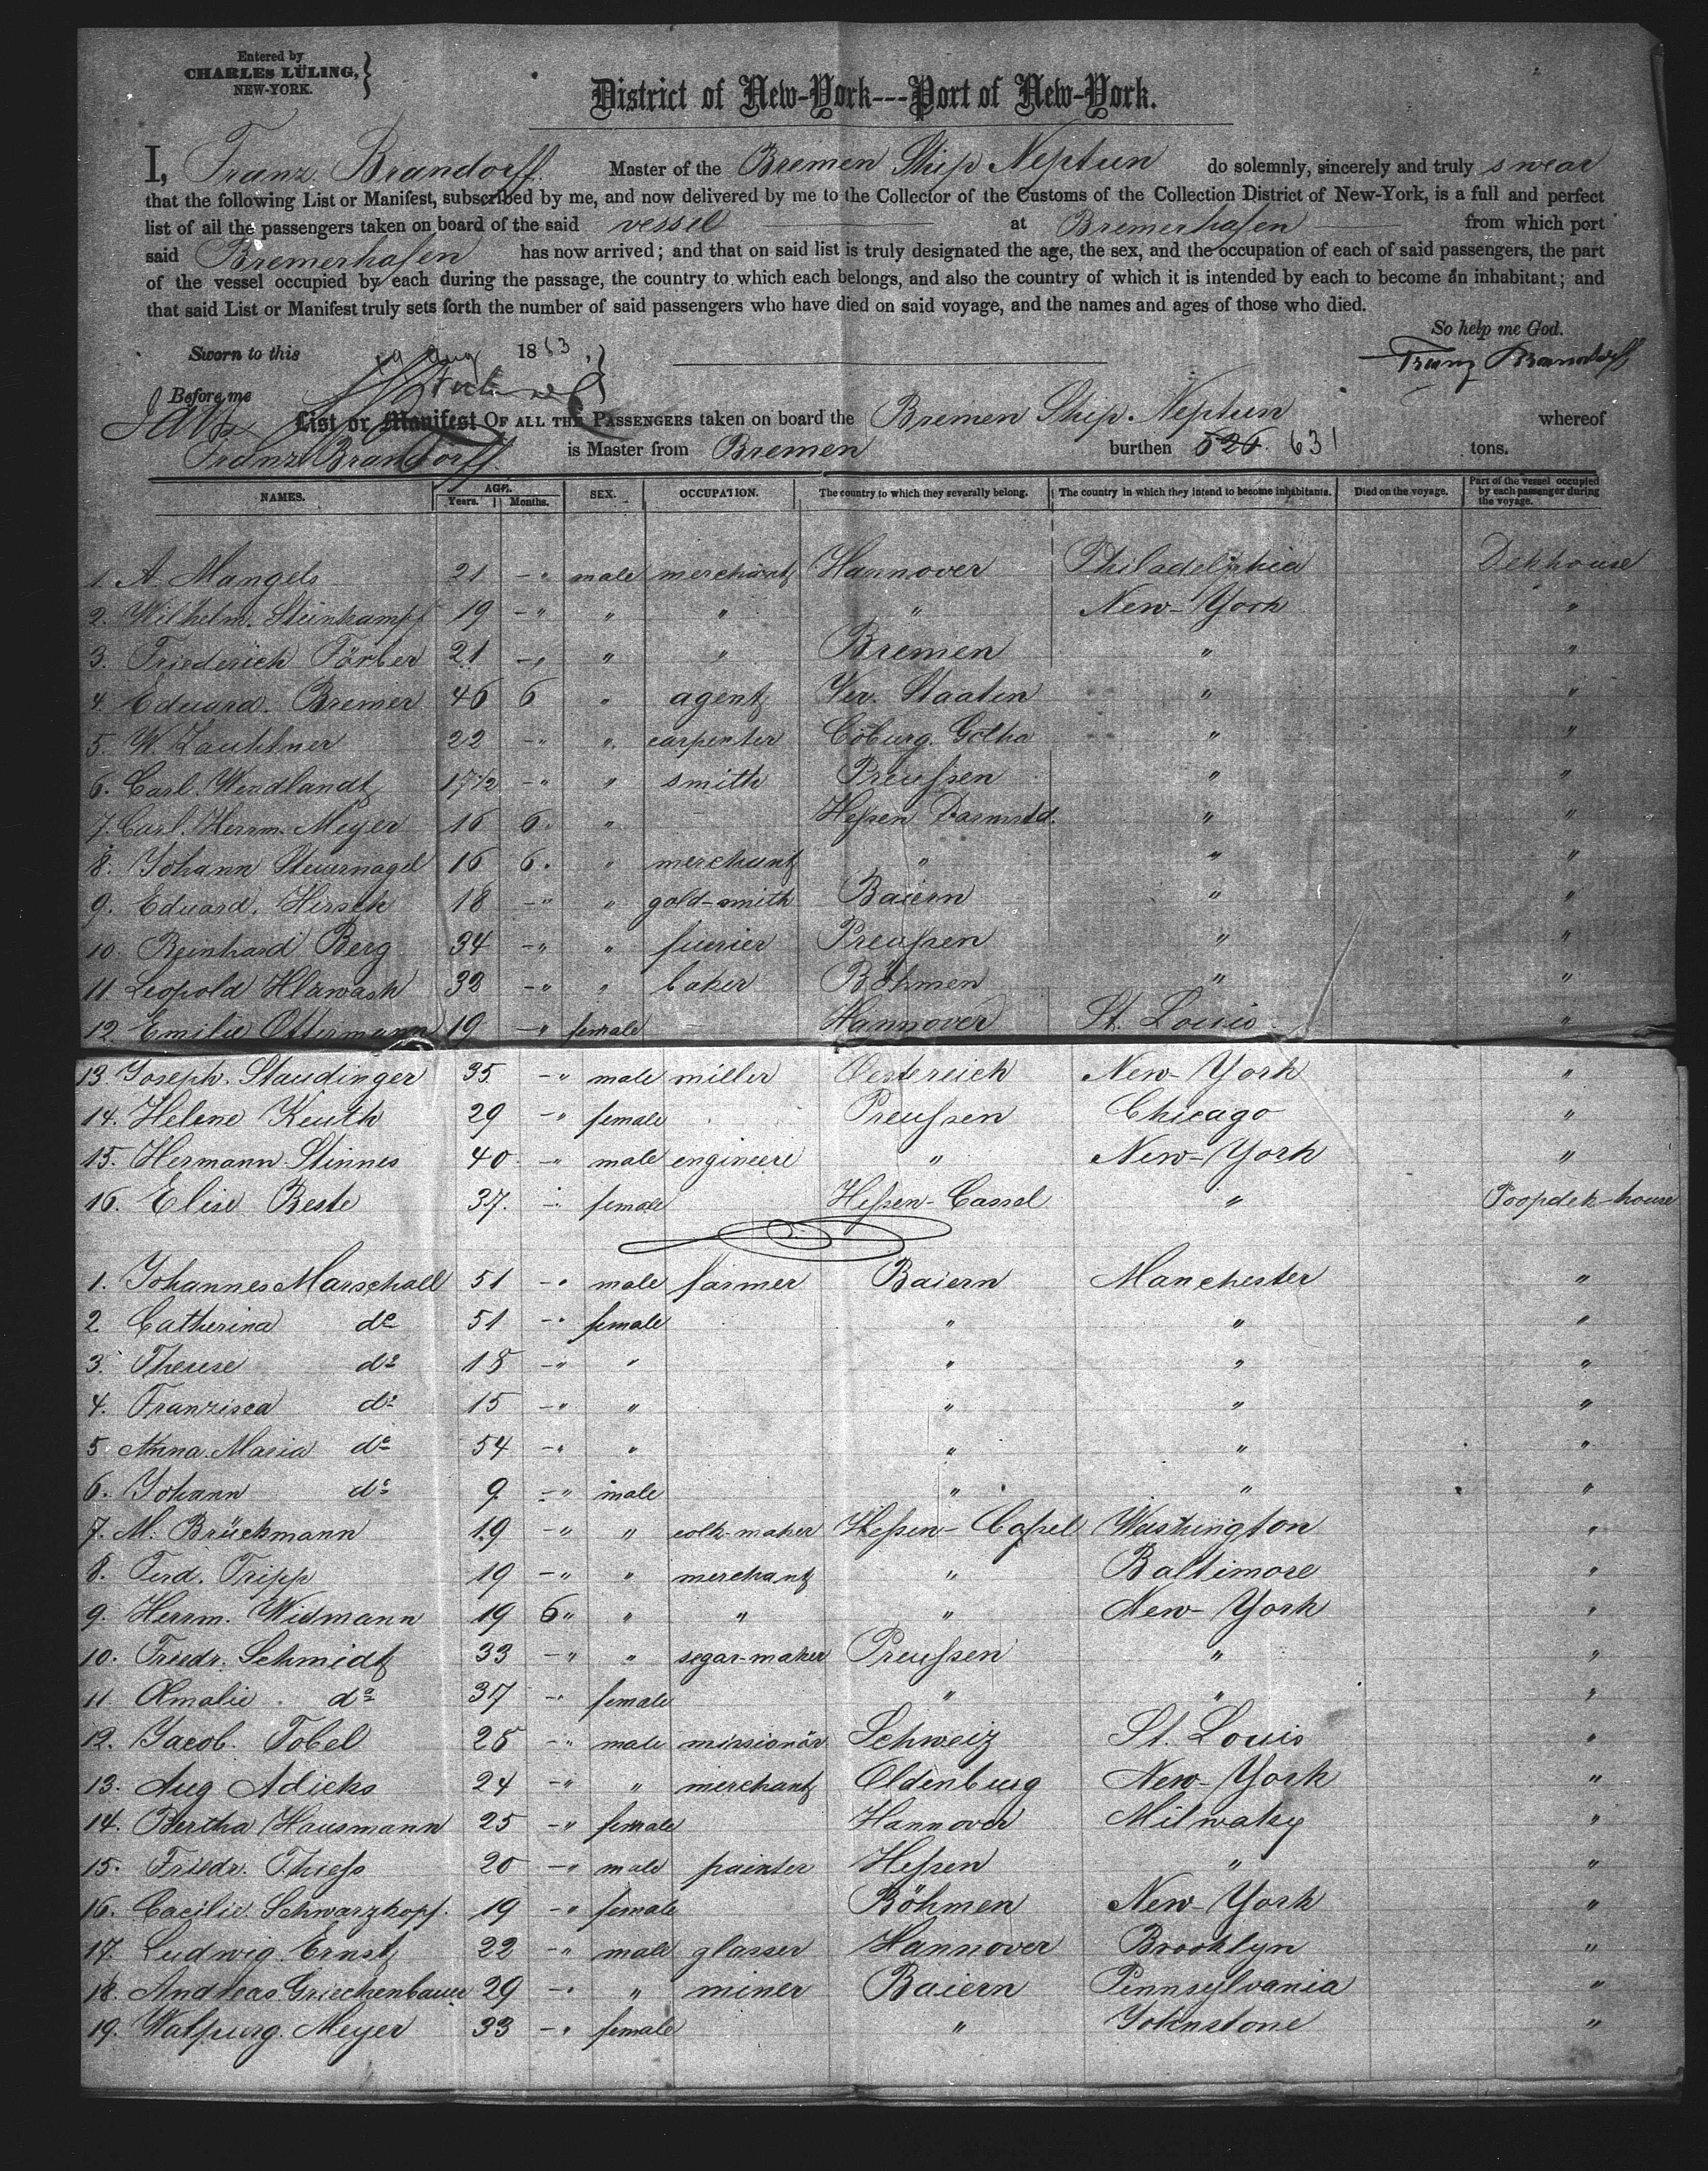 Entered by
CHARLES LÜLING,
NEW-YORK.
District of New-York---Port of New-York.
I, Franz Brandorff. Master of the Bremen Ship Neptun do solemnly, sincerely and truly swear
that the following List or Manifest, subscribed by me, and now delivered by me to the Collector of the Customs of the Collection District of New-York, is a full and perfect
list of all the passengers taken on board of the said vessel at Bremerhafen from which port
said Bremerhafen has now arrived; and that on said list is truly designated the age, the sex, and the occupation of each of said passengers, the part
of the vessel occupied by each during the passage, the country to which each belongs, and also the country of which it is intended by each to become an inhabitant; and
that said List or Manifest truly sets forth the number of said passengers who have died on said voyage, and the names and ages of those who died.
So help me God.
Sworn to this 19 Aug 1863, Franz Brandorff
Before me
List or Manifest OF ALL THE PASSENGERS taken on board the Bremen Ship. Neptun whereof
Franz Brandorff. is Master from Bremen burthen 526. 631 tons.
NAMES. AGE. Years. Months. SEX. OCCUPATION. The country to which they severally belong. The country in which they intend to become inhabitants. Died on the voyage. Part of the vessel occupied by each passenger during the voyage.
1. A. Mangels 21 - " male merchant Hannover Philadelphia Dekhouse
2. Wilhelm. Steinkampf 19 - " " " " New-York "
3. Friederich Förber 21 - " " " Bremen " "
4. Eduard. Bremer 46 6 " agent Ver. Staaten " "
5. W. Lauhtner 22 - " " carpenter Coburg. Gotha " "
6. Carl. Wendlandt 17 1/2 - " " smith Preußen " "
7. Carl. Herrm. Meyer 16 6. " - Heßen Darmstd. " "
8. Johann Steuernagel 16 6. " merchant " " "
9. Eduard. Hirsch 18 - " " gold-smith Baiern " "
10. Reinhard Berg 34 - " " furrier Preußen " "
11. Leopold Hlawash 32 - " " baker Böhmen " "
12. Emilie Ottermann 19 - " female - Hannover St. Louis "
13. Joseph. Staudinger 35 - " male miller Oestereich New-York "
14. Helene Keuth 29 - " female Preußen Chicago "
15. Hermann Stinnes 40 - " male engineere " New-York "
16. Elise Beste 37. - " female Heßen-Cassel " Poopdek-house
1. Johannes Marschall 51 - " male farmer Baiern Manchester "
2. Catherina do 51 - " female " " "
3. Therese do 18 - " " " " "
4. Franzisca do 15 - " " " " "
5. Anna. Maria do 54 - " " " " "
6. Johann do 9 - " male " " "
7. M. Brückmann 19 - " " Heßen-Caßel Washington "
8. Ferd. Tripp 19 - " " merchant " Baltimore "
9. Herrm. Widmann 19 6 " " " " New-York "
10. Friedr. Schmidt 33 - " " segar-maker Preußen " "
11. Amalie do 37 - " female " " "
12. Jacob. Tobel 25 - " male missionär Schweiz St. Louis "
13. Aug Adicks 24 - " " merchant Oldenburg New-York "
14. Bertha Hausmann 25 - " female Hannover Milwaky "
15. Friedr. Thieß 20 - " male painter Heßen " "
16. Cacilie. Schwarzkopf. 19 - " female Böhmen New-York "
17. Ludwig. Ernst 22 - " male glasser Hannover Brooklyn "
18. Andreas Griechenbauer 29 - " " miner Baiern Pennsylvania "
19. Walpurg. Meyer 33 - " female " Johnstone "